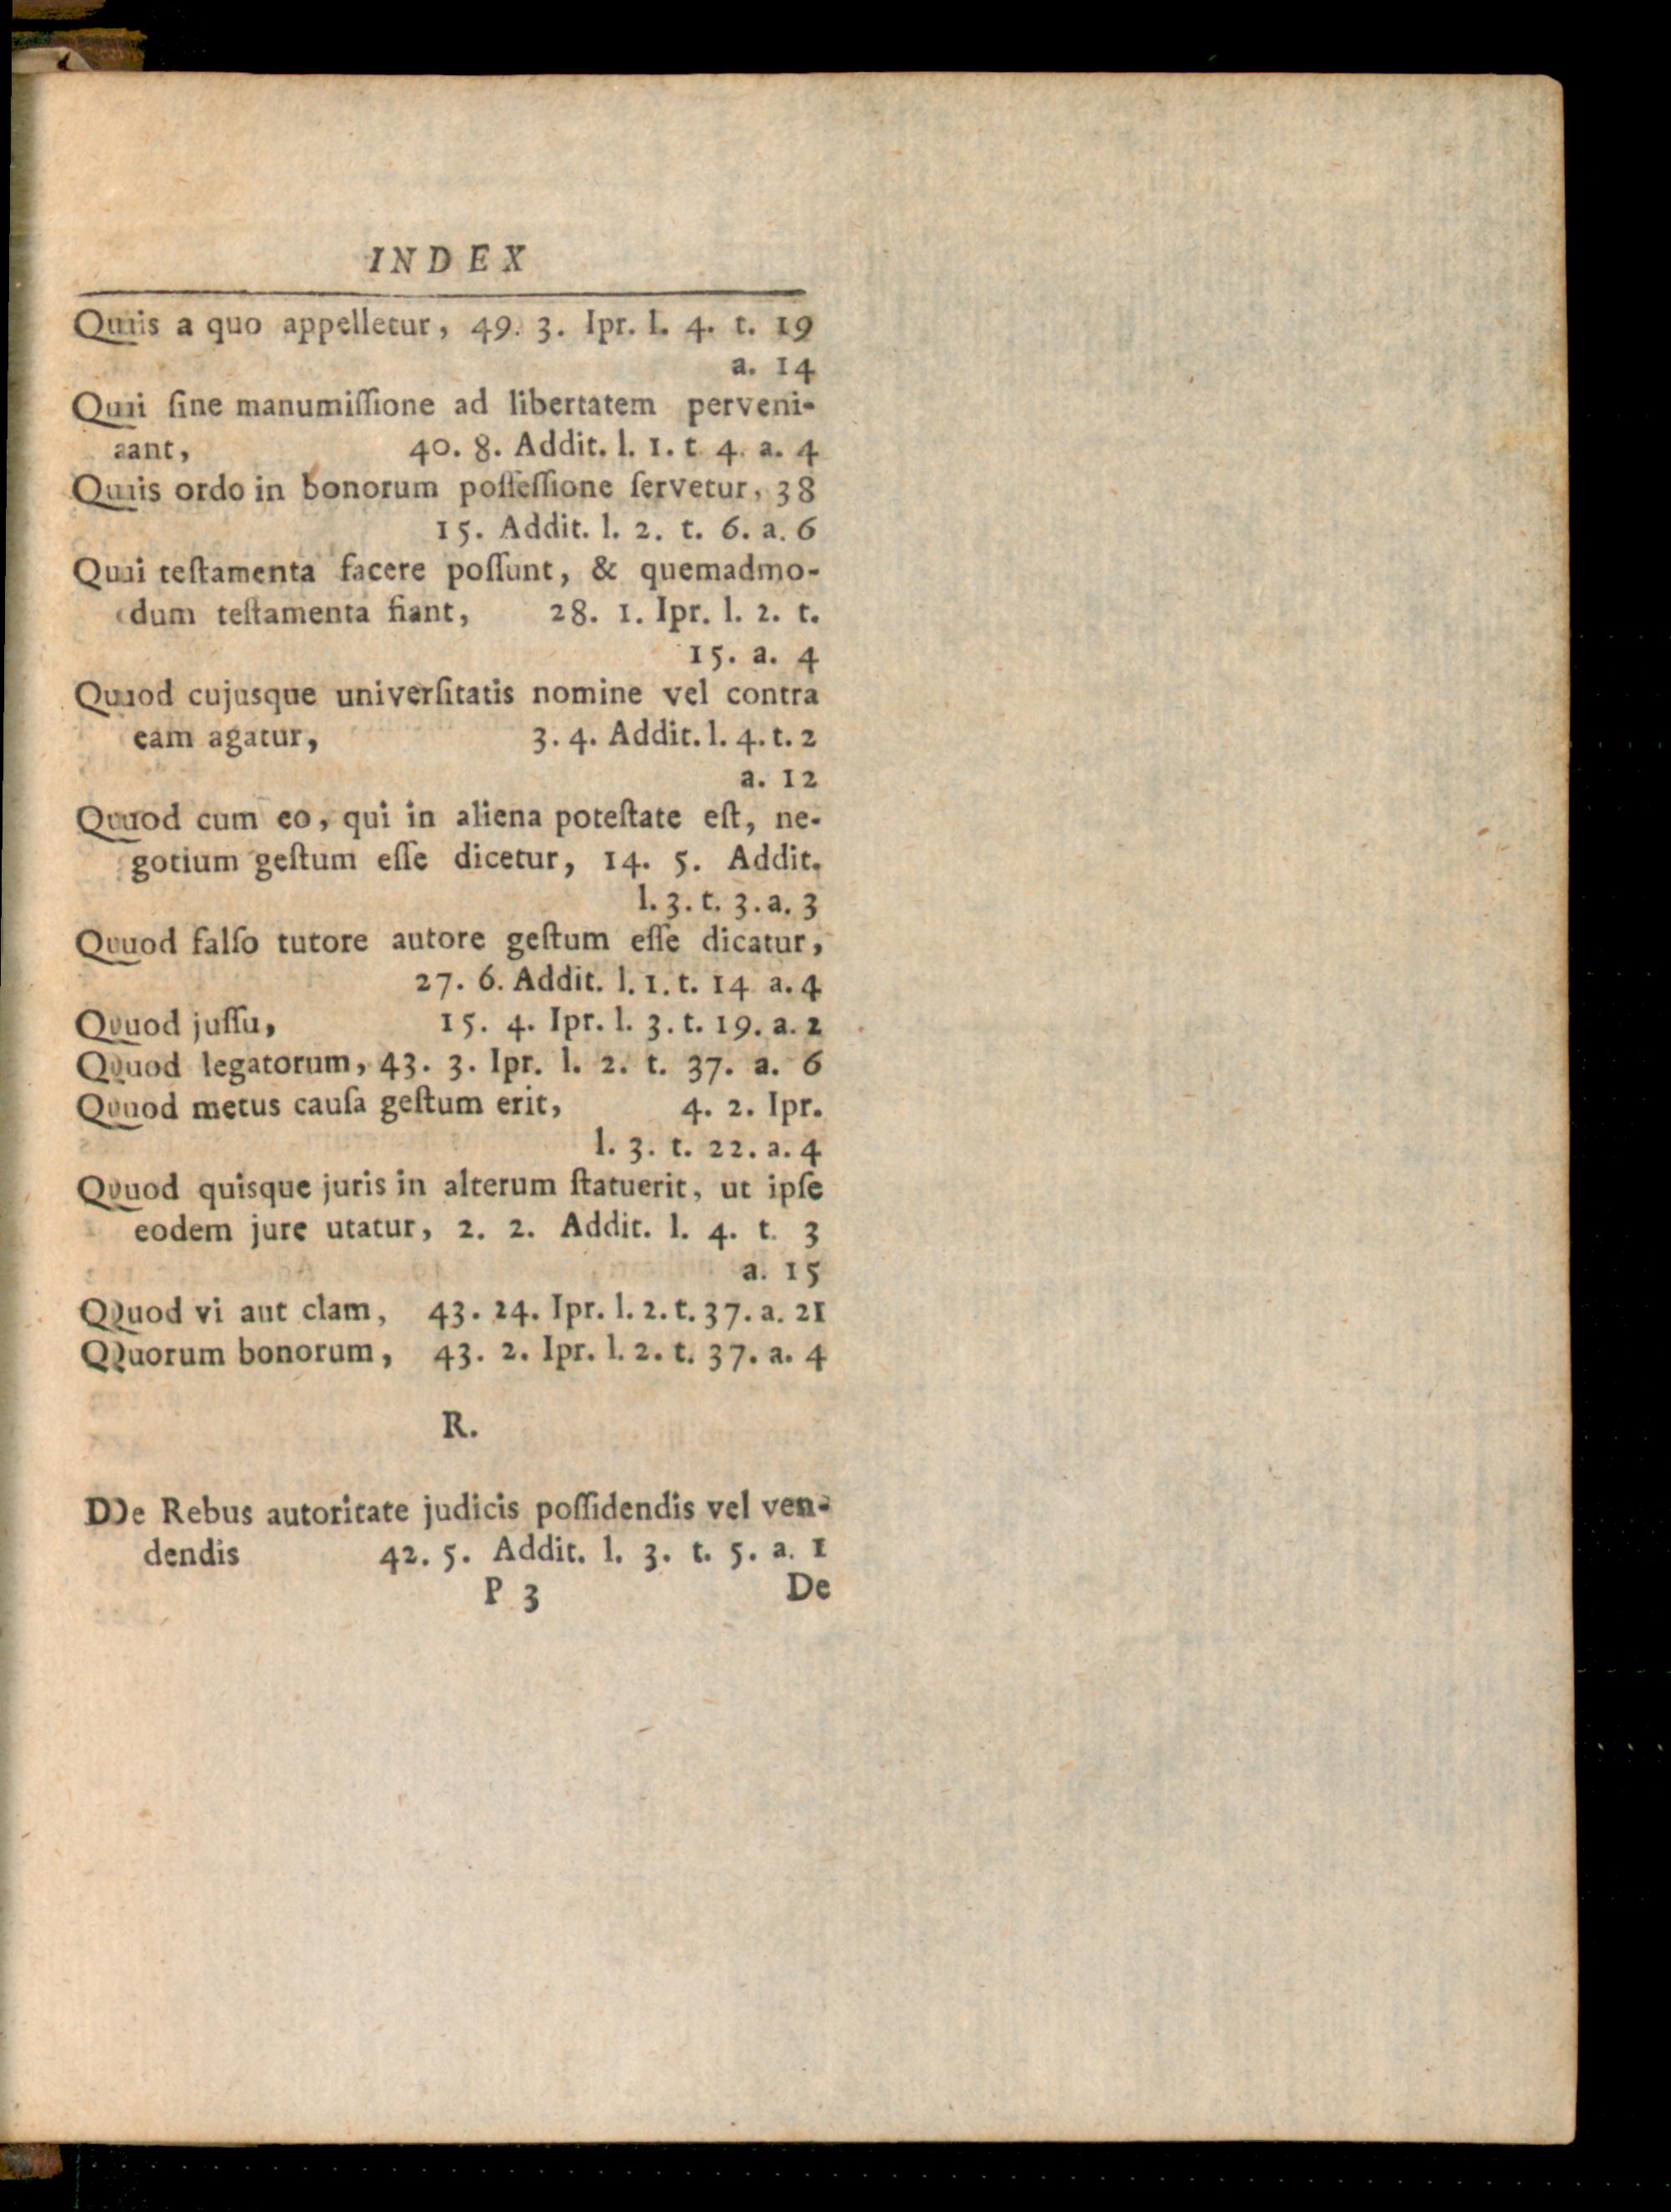 INDEX
Quis a quo appelletur, 49. 3. Ipr. l. 4. t. 19
a. 14
Qui ſine manumiſſione ad libertatem perveni-
ant, 40. 8. Addit. l. 1. t. 4. a. 4
Quis ordo in bonorum poſſeſſione ſervetur, 38
15. Addit. l. 2. t. 6. a. 6
Qui teſtamenta facere poſſunt, & quemadmo-
dum teſtamenta fiant, 28. 1. Ipr. l. 2. t.
15. a. 4
Quod cujusque univerſitatis nomine vel contra
eam agatur, 3. 4. Addit. l. 4. t. 2
a. 12
Quod cum eo, qui in aliena poteſtate eſt, ne-
gotium geſtum eſſe dicetur, 14. 5. Addit.
l. 3. t. 3. a. 3
Quod falſo tutore autore geſtum eſſe dicatur,
27. 6. Addit. l. 1. t. 14 a. 4
Quod juſſu, 15. 4. Ipr. l. 3. t. 19. a. 2
Quod legatorum, 43. 3. Ipr. l. 2. t. 37. a. 6
Quod metus cauſa geſtum erit, 4. 2. Ipr.
l. 3. t. 22. a. 4
Quod quisque juris in alterum ſtatuerit, ut ipſe
eodem jure utatur, 2. 2. Addit. l. 4. t. 3
a. 15
Quod vi aut clam, 43. 24. Ipr. l. 2. t. 37. a. 21
Quorum bonorum, 43. 2. Ipr. l. 2. t. 37. a. 4
R.
De Rebus autoritate judicis poſſidendis vel ven-
dendis 42. 5. Addit. l. 3. t. 5. a. 1
P 3 De